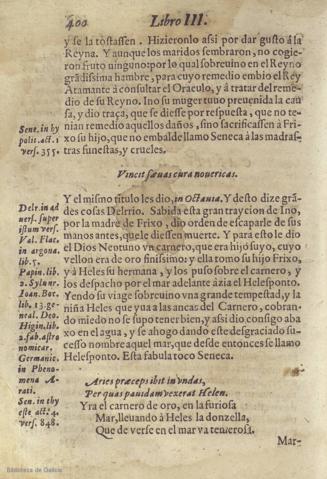 400 Libro III.
y se la tostassen. Hizieronlo assi por dar gusto á la
Reyna. Y aunque los maridos sembraron, no cogie-
ron fruto ninguno: por lo qual sobreuino en el Reyno
grādissima hambre, para cuyo remedio embio el Rey
Atamante à consultar el Oraculo, y á tratar del reme-
dio de su Reyno. Ino su muger tuuo preuenida la cau-
sa, y dio traça, que se diesse por respuesta, que no te-
nian remedio aquellos daños, sino sacrificassen à Fri-
xo su hijo, que no en balde llamo Seneca à las madras-
tras funestas, y crueles.
Sene. in hy
polit. act. 1
vers. 355.
Vincit sæuas cura nouercas.
Y el mismo titulo les dio, in Octauia. Y desto dize grā-
des cosas Delrrio. Sabida esta gran traycion de Ino,
por la madre de Frixo, dio orden de escaparle de sus
manos antes, que le diessen muerte. Y para esto le dio
el Dios Neptuno vn carnero, que era hijo suyo, cuyo
vellon era de oro finissimo: y ella tomo su hijo Frixo,
y à Heles su hermana, y los puso sobre el carnero, y
los despacho por el mar adelante àzia el Helesponto.
Yendo su viage sobreuino vna grande tempestad, y la
niña Heles que yua a las ancas del Carnero, cobran-
do miedo no se supo tener bien, y assi dio consigo aba
xo en el agua, y se ahogo dando este desgraciado su-
cesso nombre aquel mar, que desde entonces se llamo
Helesponto. Esta fabula toco Seneca.
Delr. in ad
uers. super
istum vers.
Val. Flac.
in argona.
lib. 5.
Papin. lib.
2. Syluar.
Ioan. Bot.
lib. 13. ge-
neal. Deo.
Higin. lib.
2. fab. astro
nomicar.
Germanic.
in Pheno-
mena A-
rati.
Sen. in thy
este act. 4.
vers. 848.
Aries præceps ibit in vndas,
Per quas pauidam vexerat Helen.
Yra el carnero de oro, en la furiosa
Mar, lleuando à Heles la donzella,
Que de verse en el mar va temerosa.
Mar-
Biblioteca de Galicia